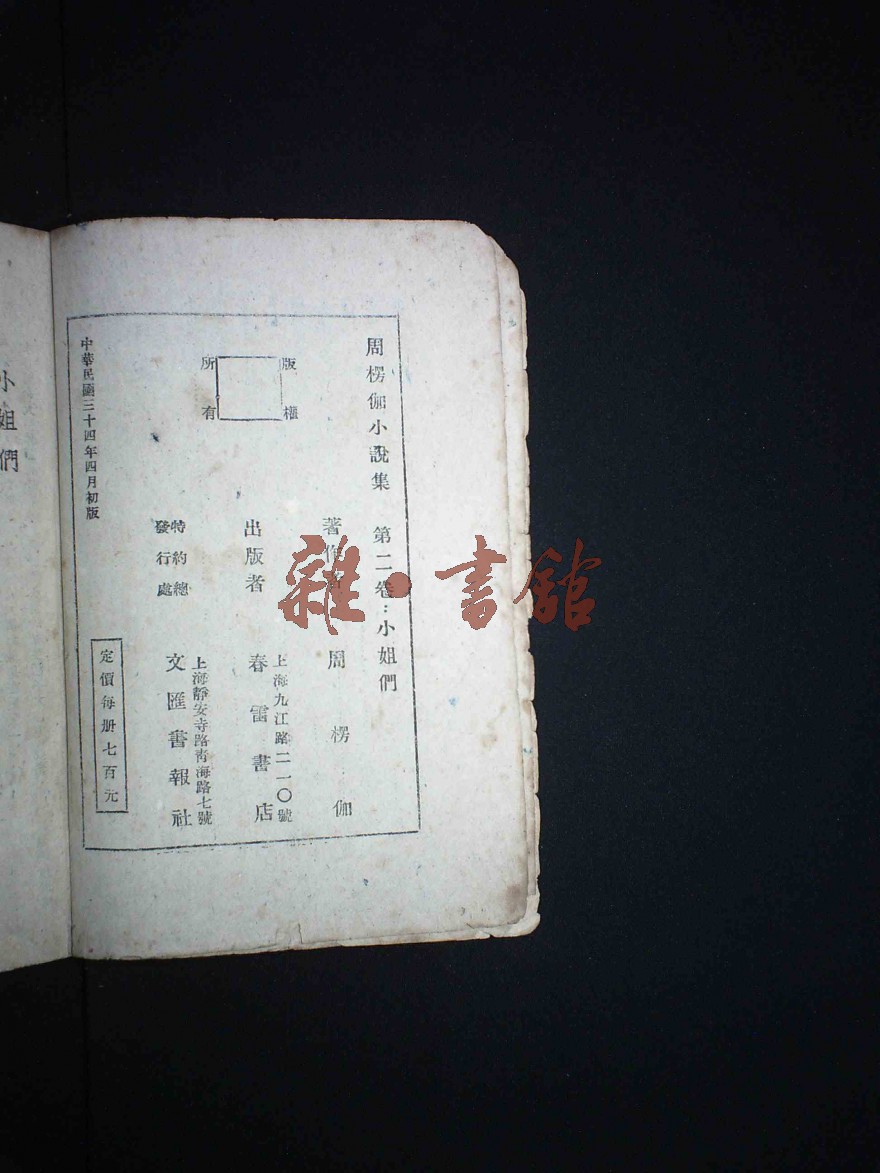 周楞伽小說集　第二卷：小姐們
版權
所有
著作者　周楞伽
出版者　春雷書店
上海九江路二一〇號
特約總
發行處
上海靜安寺路靑海路七號
文匯書報社
定價每册七百元
中華民國三十四年四月初版
小姐們
雜·書舘